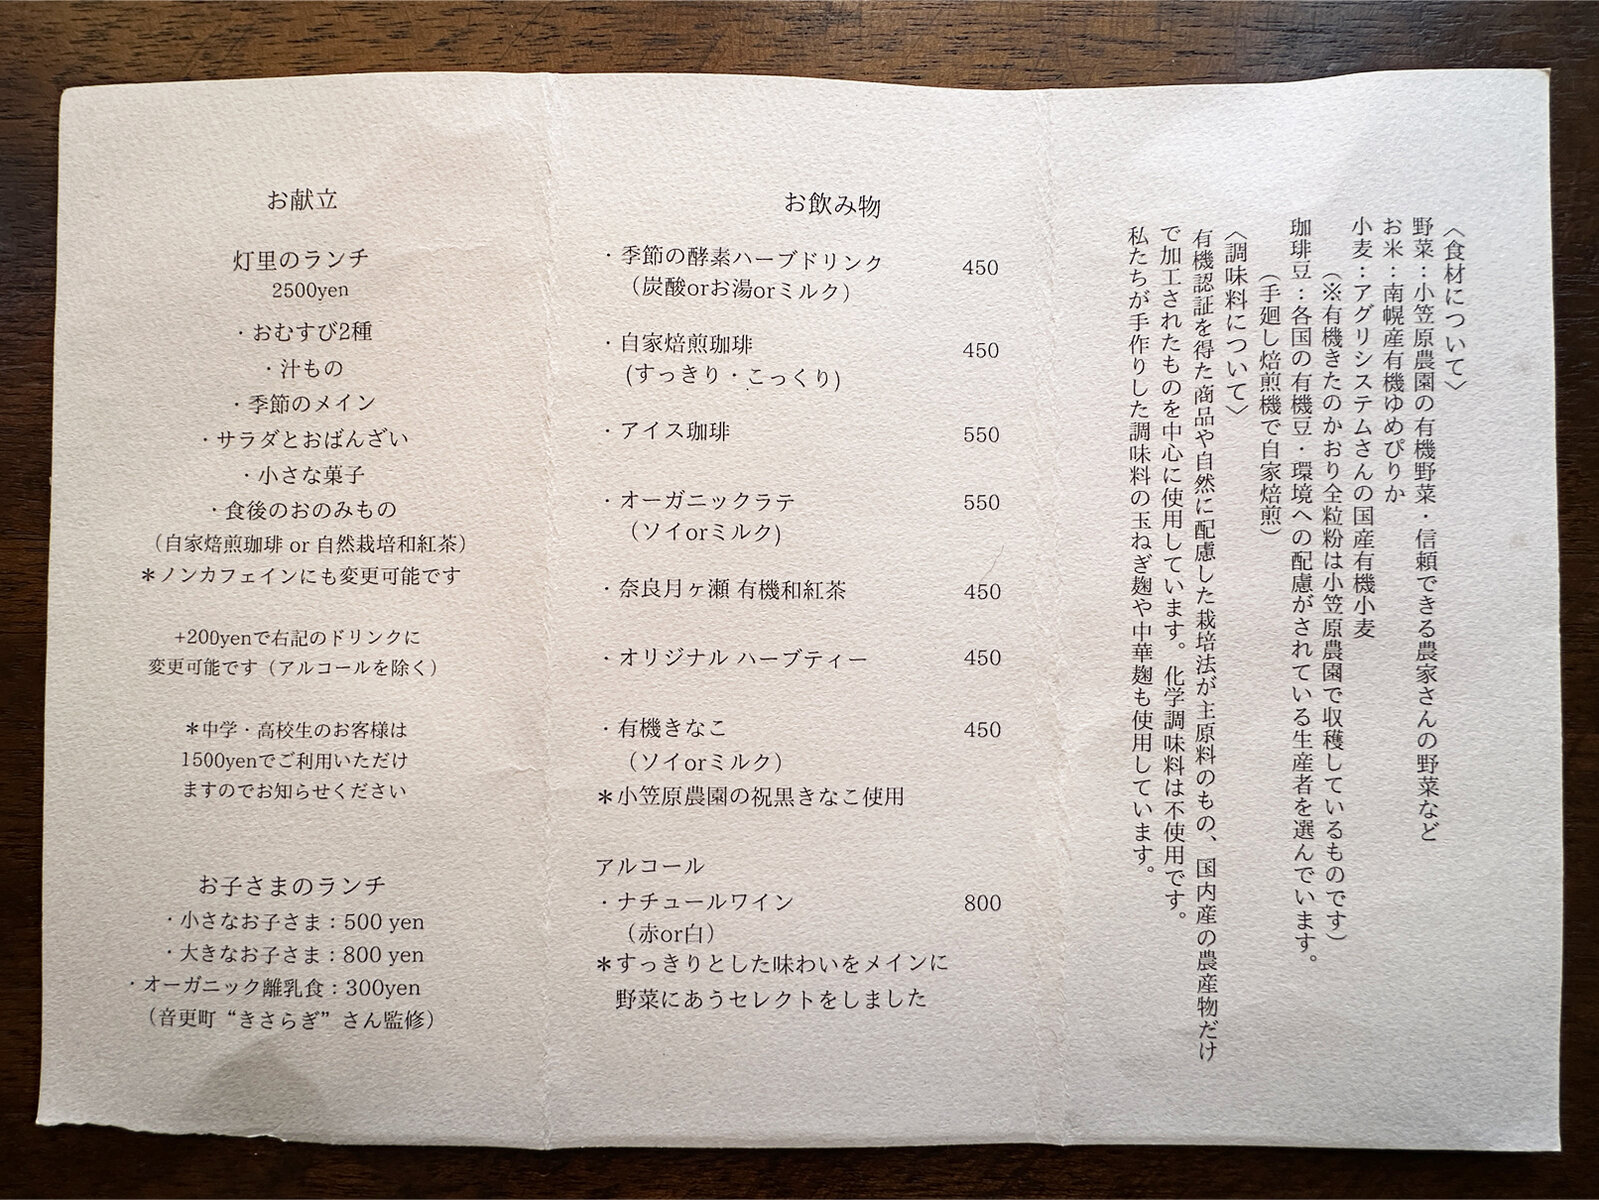 お献立
灯里のランチ
2500yen
・おむすび2種
・汁もの
・季節のメイン
・サラダとおばんざい
・小さな菓子
・食後のおのみもの
（自家焙煎珈琲 or 自然栽培和紅茶）
＊ノンカフェインにも変更可能です
+200yenで右記のドリンクに
変更可能です（アルコールを除く）
＊中学・高校生のお客様は
1500yenでご利用いただけ
ますのでお知らせください
お子さまのランチ
・小さなお子さま：500 yen
・大きなお子さま：800 yen
・オーガニック離乳食：300yen
（音更町“きさらぎ”さん監修）
お飲み物
・季節の酵素ハーブドリンク 450
（炭酸orお湯orミルク）
・自家焙煎珈琲 450
(すっきり・こっくり)
・アイス珈琲 550
・オーガニックラテ 550
（ソイorミルク)
・奈良月ヶ瀬 有機和紅茶 450
・オリジナル ハーブティー 450
・有機きなこ 450
（ソイorミルク）
＊小笠原農園の祝黒きなこ使用
アルコール
・ナチュールワイン 800
（赤or白）
＊すっきりとした味わいをメインに
野菜にあうセレクトをしました
〈食材について〉
野菜：小笠原農園の有機野菜・信頼できる農家さんの野菜など
お米：南幌産有機ゆめぴりか
小麦：アグリシステムさんの国産有機小麦
（※有機きたのかおり全粒粉は小笠原農園で収穫しているものです）
珈琲豆：各国の有機豆・環境への配慮がされている生産者を選んでいます。
（手廻し焙煎機で自家焙煎）
〈調味料について〉
有機認証を得た商品や自然に配慮した栽培法が主原料のもの、国内産の農産物だけ
で加工されたものを中心に使用しています。化学調味料は不使用です。
私たちが手作りした調味料の玉ねぎ麹や中華麹も使用しています。